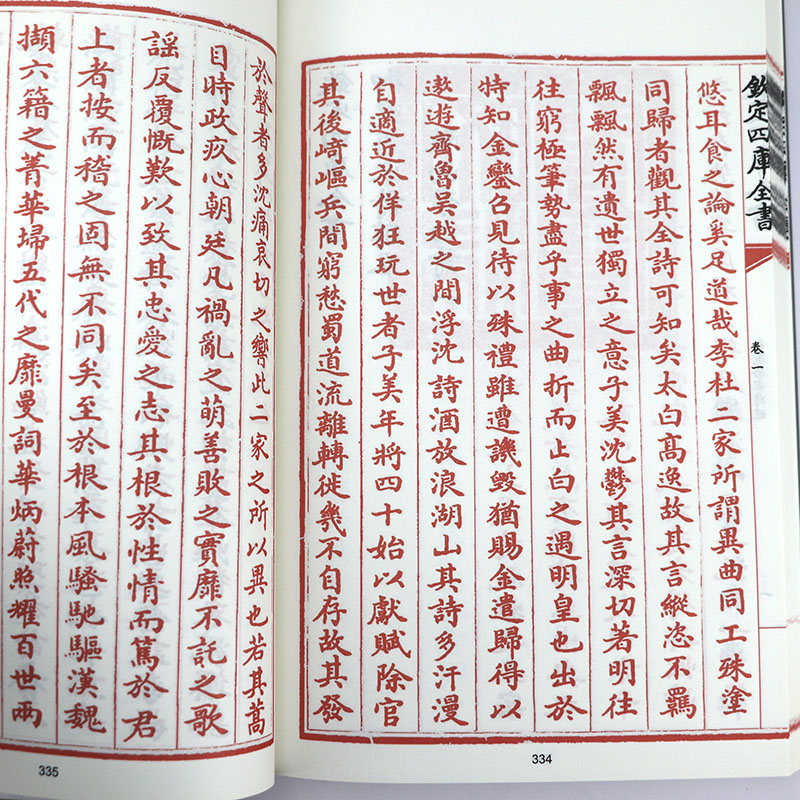 欽定四庫全書
卷一
悠耳食之論奚足道哉李杜二家所謂異曲同工殊塗
同歸者觀其全詩可知矣太白高逸故其言縱恣不羈
飄飄然有遺世獨立之意子美沈鬱其言深切著明往
往窮極筆勢盡乎事之曲折而止白之遇明皇也出於
特知金鑾召見待以殊禮雖遭譏毀猶賜金遣歸得以
遨遊齊魯吳越之間浮沈詩酒放浪湖山其詩多汗漫
自適近於佯狂玩世者子美年將四十始以獻賦除官
其後崎嶇兵間窮愁蜀道流離轉徙幾不自存故其發
334
於聲者多沈痛哀切之響此二家之所以異也若其蒿
目時政疚心朝廷凡禍亂之萌善敗之實靡不託之歌
謡反覆慨歎以致其忠愛之志其根於性情而篤於君
上者按而稽之固無不同矣至於根本風騷馳驅漢魏
擷六籍之菁華埽五代之靡曼詞華炳蔚照耀百世兩
335